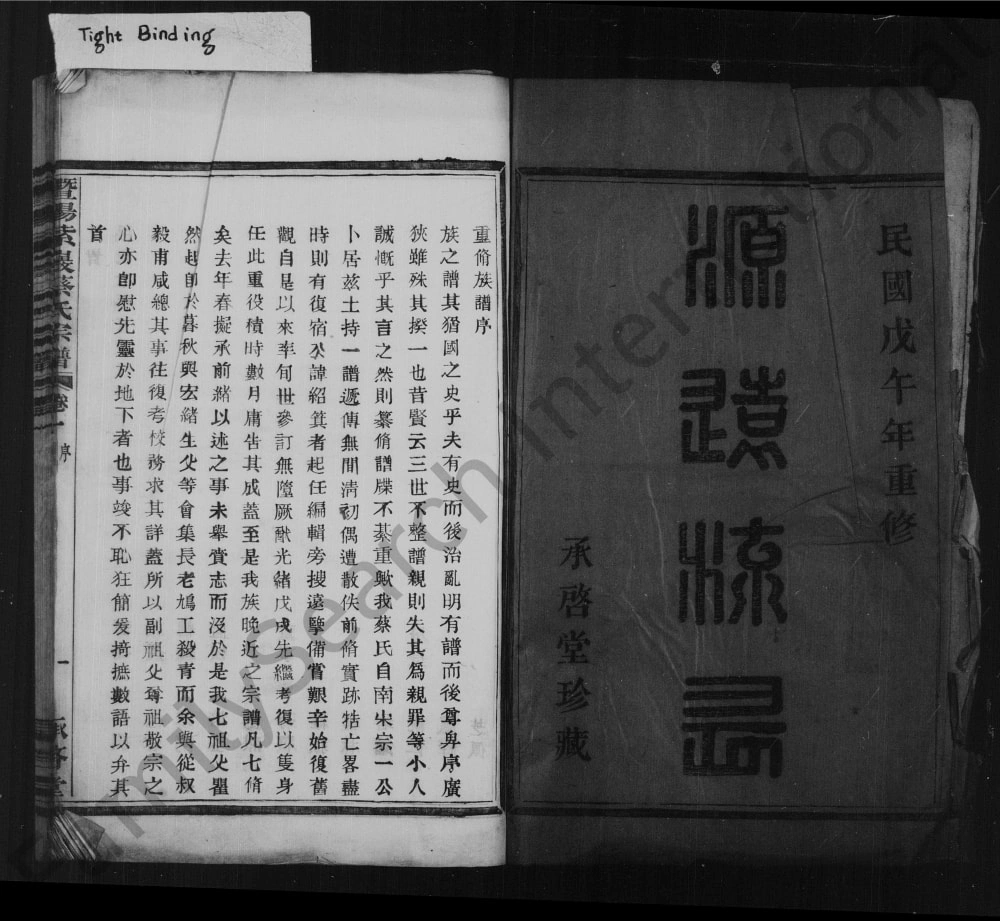 Tight Binding
民國戊午年重修
源遠流長
承啓堂珍藏
重脩族譜序
族之譜其猶國之史乎夫有史而後治亂明有譜而後尊卑序廣
狹雖殊其揆一也昔賢云三世不整譜親則失其為親罪等小人
誠慨乎其言之然則纂脩譜牒不綦重歟我蔡氏自南宋宗一公
卜居茲土持一譜遞傳無間清初偶遭散佚前脩實跡牿亡畧盡
時則有復宿公諱紹箕者起任編輯旁搜遠擥備嘗艱辛始復舊
觀自是以來率旬世參訂無墮厥猷光緒戊戌先繼考復以隻身
任此重役積時數月庸告其成蓋至是我族晚近之宗譜凡七脩
矣去年春擬承前緒以述之事未舉賫志而沒於是我七祖父瞿
然起卽於暮秋與宏緒生父等會集長老鳩工殺青而余與從叔
毅甫咸總其事往復考校務求其詳蓋所以副祖父尊祖敬宗之
心亦卽慰先靈於地下者也事竣不恥狂簡爰掎摭數語以弁其
首
暨陽紫巖蔡氏宗譜
卷一
序
一
承啓堂
FamilySearch International